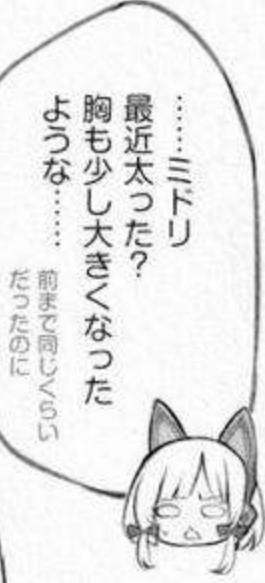 ……ミドリ
最近太った？
胸も少し大きくなった
ような……
前まで同じくらい
だったのに